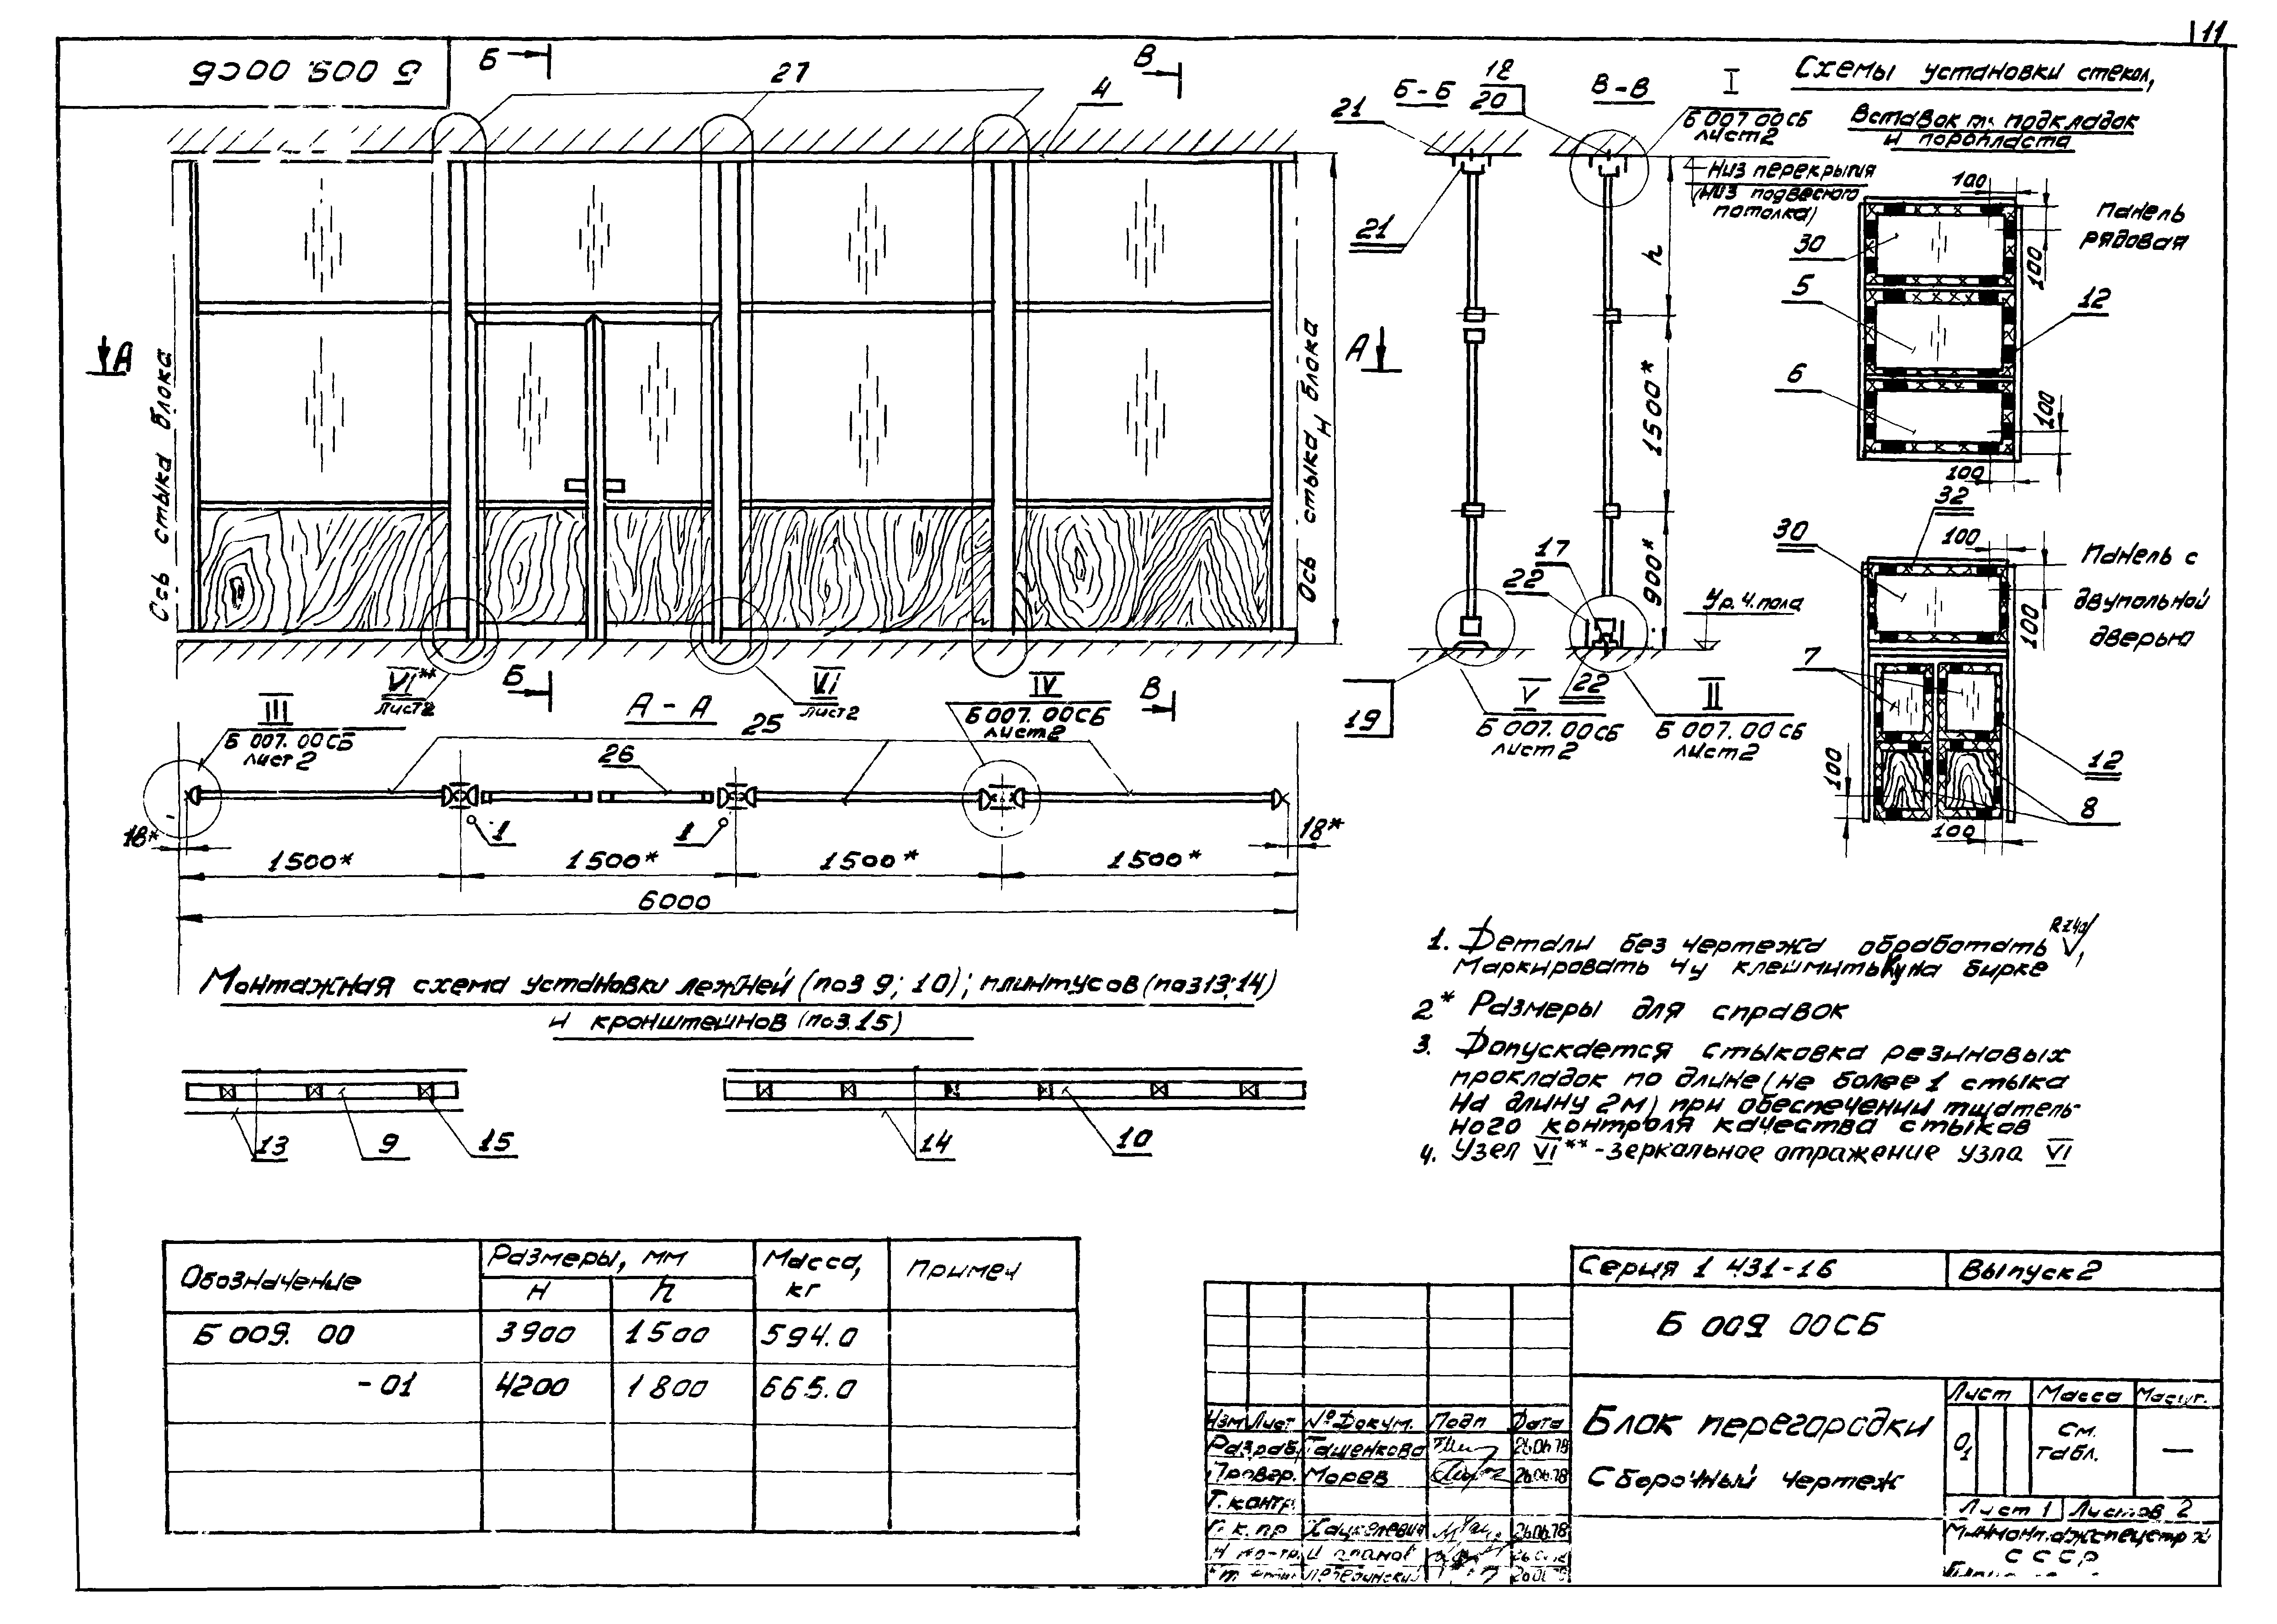 11
Б 009. 00СБ
Б
27
В
4
А
А
Ось стыка блока
Ось стыка блока
Н
VI**
лист2
Б
VI
лист2
IV
Б 007. 00СБ
лист2
В
III
Б 007. 00СБ
лист2
А - А
25
26
1
1
18*
18*
1500*
1500*
1500*
1500*
6000
Б-Б
18
20
В-В
I
Б 007 00СБ
лист2
21
21
Низ перекрытия
(низ подвесного
потолка)
h
1500*
900*
17
22
22
Ур.ч.пола
19
V
Б 007. 00СБ
лист2
II
Б 007. 00СБ
лист2
Схемы установки стекол,
вставок подкладок
и поропласта
100
Панель
рядовая
30
5
6
12
100
100
100
32
30
100
Панель с
двупольной
дверью
100
7
12
8
100
100
Монтажная схема установки лежней (поз 9; 10); плинтусов (поз13;14)
и кронштейнов (поз.15)
13
9
15
14
10
1. Детали без чертежа обработать Rz40
Маркировать Чу клеймить Ку на бирке
2* Размеры для справок
3. Допускается стыковка резиновых
прокладок по длине (не более 1 стыка
на длину 2м) при обеспечении тщатель-
ного контроля качества стыков
4. Узел VI** -зеркальное отражение узла VI
Обозначение
Размеры, мм
Масса, кг
Примеч
Н
h
Б 009. 00 3900 1500 594.0
-01 4200 1800 665.0
Серия 1 431-16
Выпуск 2
Б 009 00СБ
Блок перегородки
Сборочный чертеж
Лист Масса Масшт.
01
См.
табл.
—
Лист 1 Листов 2
Минмонтажспецстрой
СССР
Изм Лист № Докум. Подп Дата
Разраб. Гащенкова 26.06.78
Провер. Морев 26.06.78
Т. контр.
Г. к. пр Хацкелевич 26.06.78